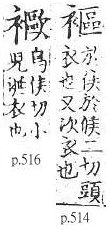 䙔
於侯於候二切頭
衣也又次衣也
p.514
烏侯切小
兒涎衣也
p.516